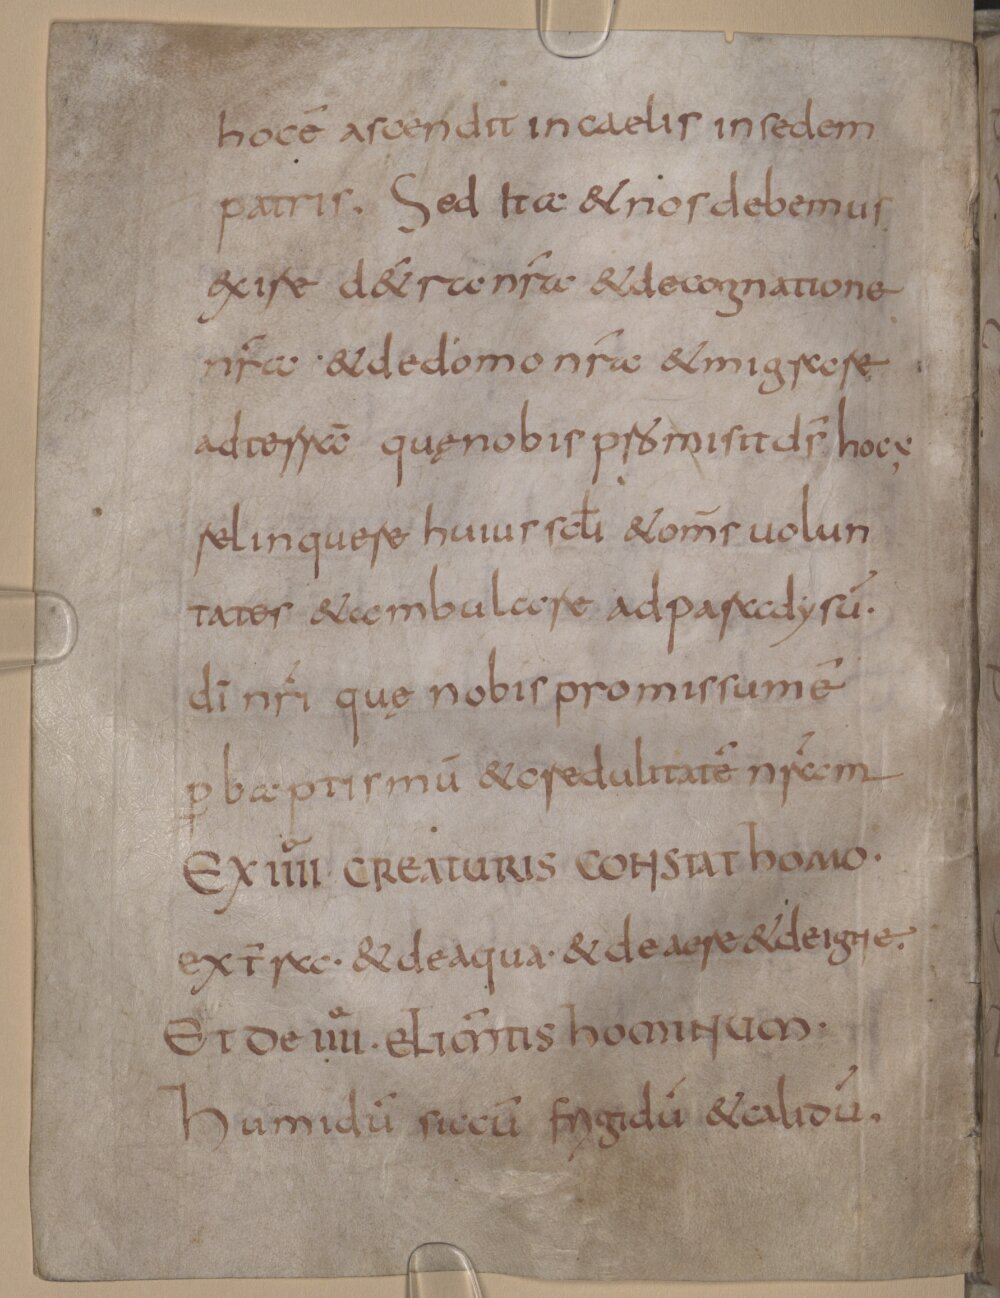 hocē ascendit in caelis in sedem
patris. Sed ita & nos debemus
exire d& rra nr̄a & de cognatione
nr̄a · & de domo nr̄a & migrare
ad terrā quę nobis promisit ds̄ hoc ē
relinquere huius scłi & om̄s uolun
tates & ambulare ad paradysū·
dī nr̄i quę nobis promissum ē
p baptismū & credulitatē nr̄am
Ex IIII CREATURIS CONSTAT homo·
ex tr̄ra· & de aqua· & de aere & de igne·
Et de IIII· elim̄tis hominum·
humidū siccū frigidū & calidū.